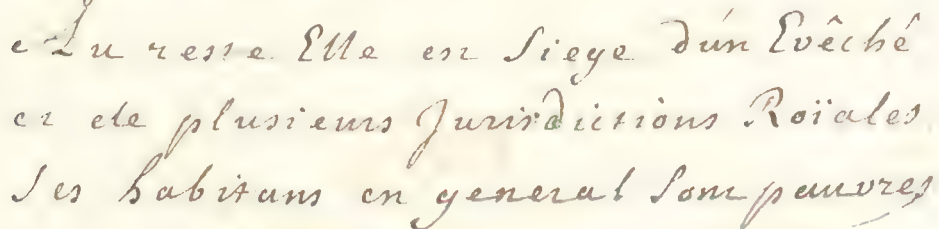 Au reste Elle est Siege d'un Evêché
et de plusieurs Jurisdictions Roïales
Ses habitans en general sont pauvres,